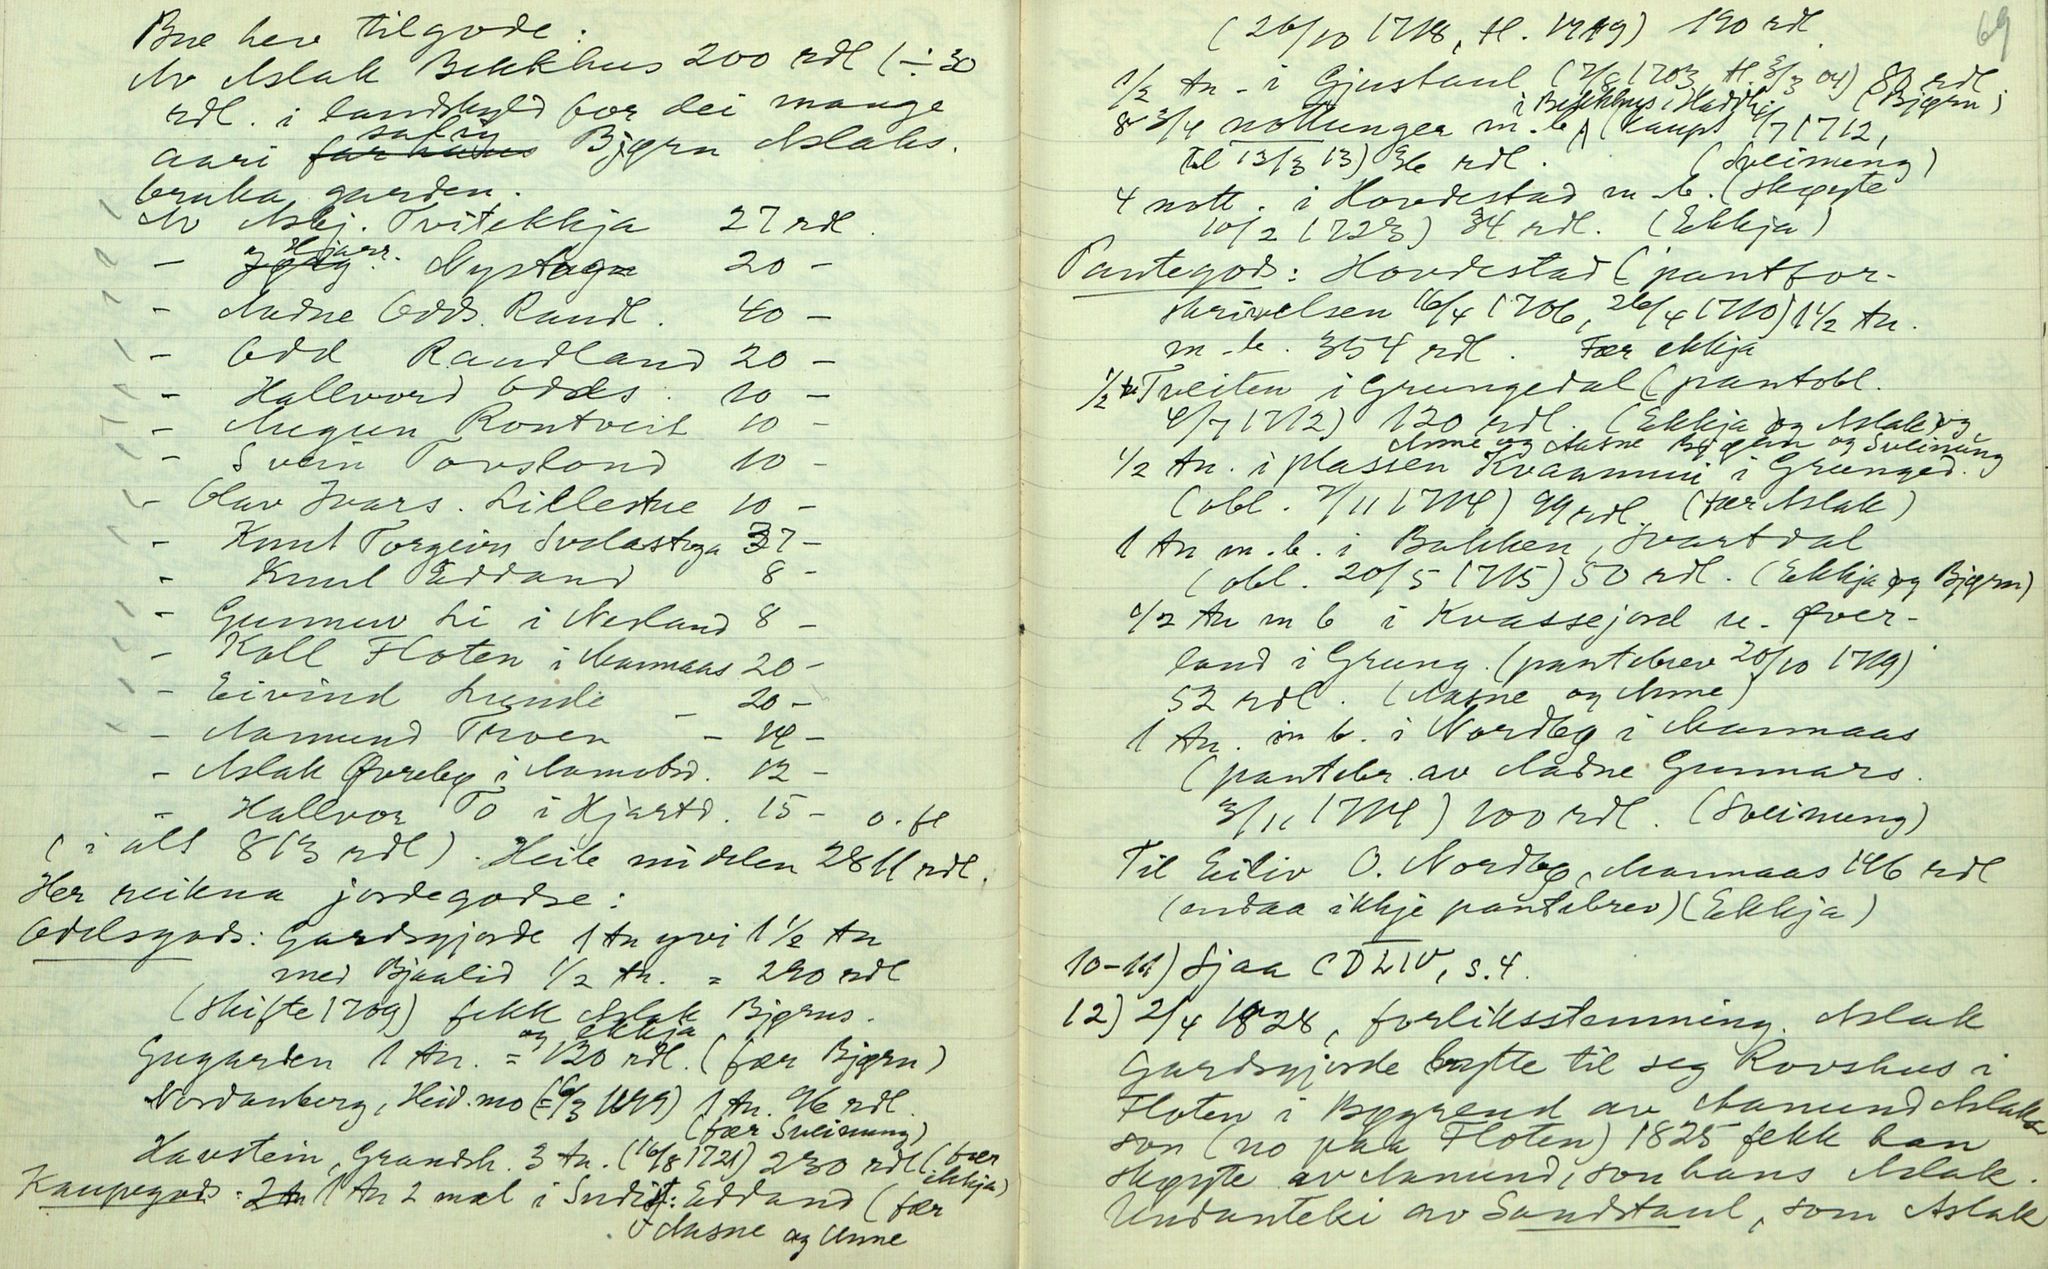 Bue hev tilgode:
Av Aslak Bekkhus 200 rdl (÷ 30
rdl. i landskyld for dei mange
aari som Bjørn Aslaks.
bruka garden.
Av Asbj. Tvitekkja 27 rdl.
— og Hjarr. Nystoga 20 —
— Aadne Odds. Randl. 40 —
— Odd Randland 20 —
— Hallvord Odds. 10 —
— Augun Rontveit 10 —
— Svein Tovsland 10 —
— Olav Ivars. Lillestue 10 —
— Knut Torgeirs Svalastoga 37 —
— Knut Edland 8 —
— Gunnuv Li i Nesland 8 —
— Koll Floten i Aamaas 20 —
— Eivind Lunde — 20 —
— Aamund Troen — 14 —
— Aslak Øvrebø i Aamotsd. 12 —
— Hallvor To i Hjartd. 15 — o. fl
(i alt 813 rdl). Heile midelen 2811 rdl.
Her reikna jordegodse:
Odelsgods: Gardsgjorde 1 tn yvi 1 1/2 tn
med Bjaalid 1/2 tn. = 290 rdl
(skifte 1709) fekk Aslak Bjørns.
og ekkja
Gugarden 1 tn. = 120 rdl. (fær Bjørn)
Nordanberg, Heid. mo (6/3 1699) 1 tn. 96 rdl.
(fær Sveinung)
Havstein, Gransh. 3 tn. (16/8 1721) 230 rdl (fær
ekkja)
Kaupegods: 2 tn 1 tn 2 mæl i Sudist. Edland (fær
Aasne og Anne
69
(26/10 1718, tl. 1719) 190 rdl.
1/2 tn. i Gjustaul (7/8 1703 tl. 3/3 04) 80 rdl
i Bekkhus i Hadd. (Bjørn)
8 3/4 nottunger m. b. (kaupt 4/7 1712,
tl 13/3 13) 36 rdl. (Sveinung)
4 nott. i Hovdestad m. b. (skøyte
10/2 1723) 34 rdl. (Ekkja)
Pantegods: Hovdestad (pantfor-
skrivelsen 16/4 1706, 26/4 1710) 1 1/2 tn.
m. b. 354 rdl. Fær ekkja
1/2 tn Tveiten i Grungedal (pantobl.
4/7 1712) 120 rdl. (Ekkja og Aslak og
Anne og Aasne Bjørn og Sveinung
1/2 tn. i plassen Kvaammii i Grunged.
(obl. 7/11 1714) 99 rdl. (fær Aslak)
1 tn m. b. i Bakken, Svartdal
(obl. 20/5 1715) 50 rdl. (Ekkja og Bjørn)
1/2 tn m b i Kvassejord u. Øver-
land i Grung. (pantebrev 20/10 1719)
52 rdl. (Aasne og Anne)
1 tn. m b. i Nordbø i Aamaas
(pantebr. av Aadne Gunnars.
3/11 1714) 100 rdl. (Sveinung)
Til Eiliv O. Nordbø, Aamaas 146 rdl
(endaa ikkje pantebrev) (Ekkja)
10-11) Sjaa CDLIV, s. 4.
12) 2/4 1828, forliksstemning. Aslak
Gardsgjorde bytte til seg Rovshus i
Floten i Bøgrend av Aamund Aslak-
son (no paa Floten) 1825 fekk han
skøyte av Aamund, son hans Aslak.
Undanteki av Sandstaul, som Aslak